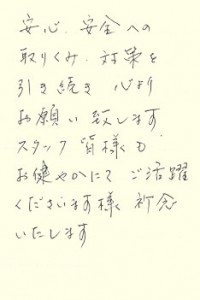 安心、安全への
取りくみ、対策を
引き続き 心より
お願い致します
スタッフ皆様も
お健やかにて ご活躍
くださいます様 祈念
いたします